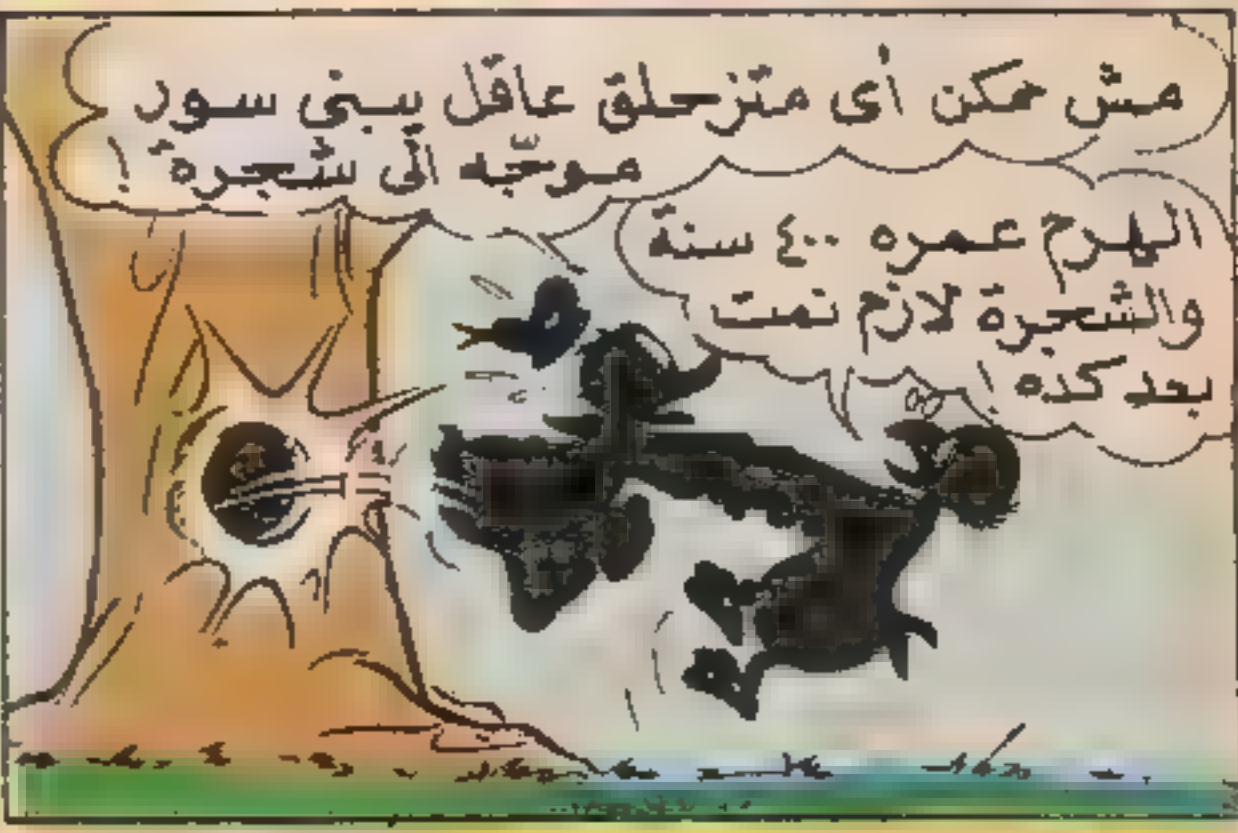 مش ممكن أى متزحلق عاقل يبنى سور
موجّه الى شجرة !
الهرم عمره ٤٠٠ سنة
والشجرة لازم نمت
بعد كده !